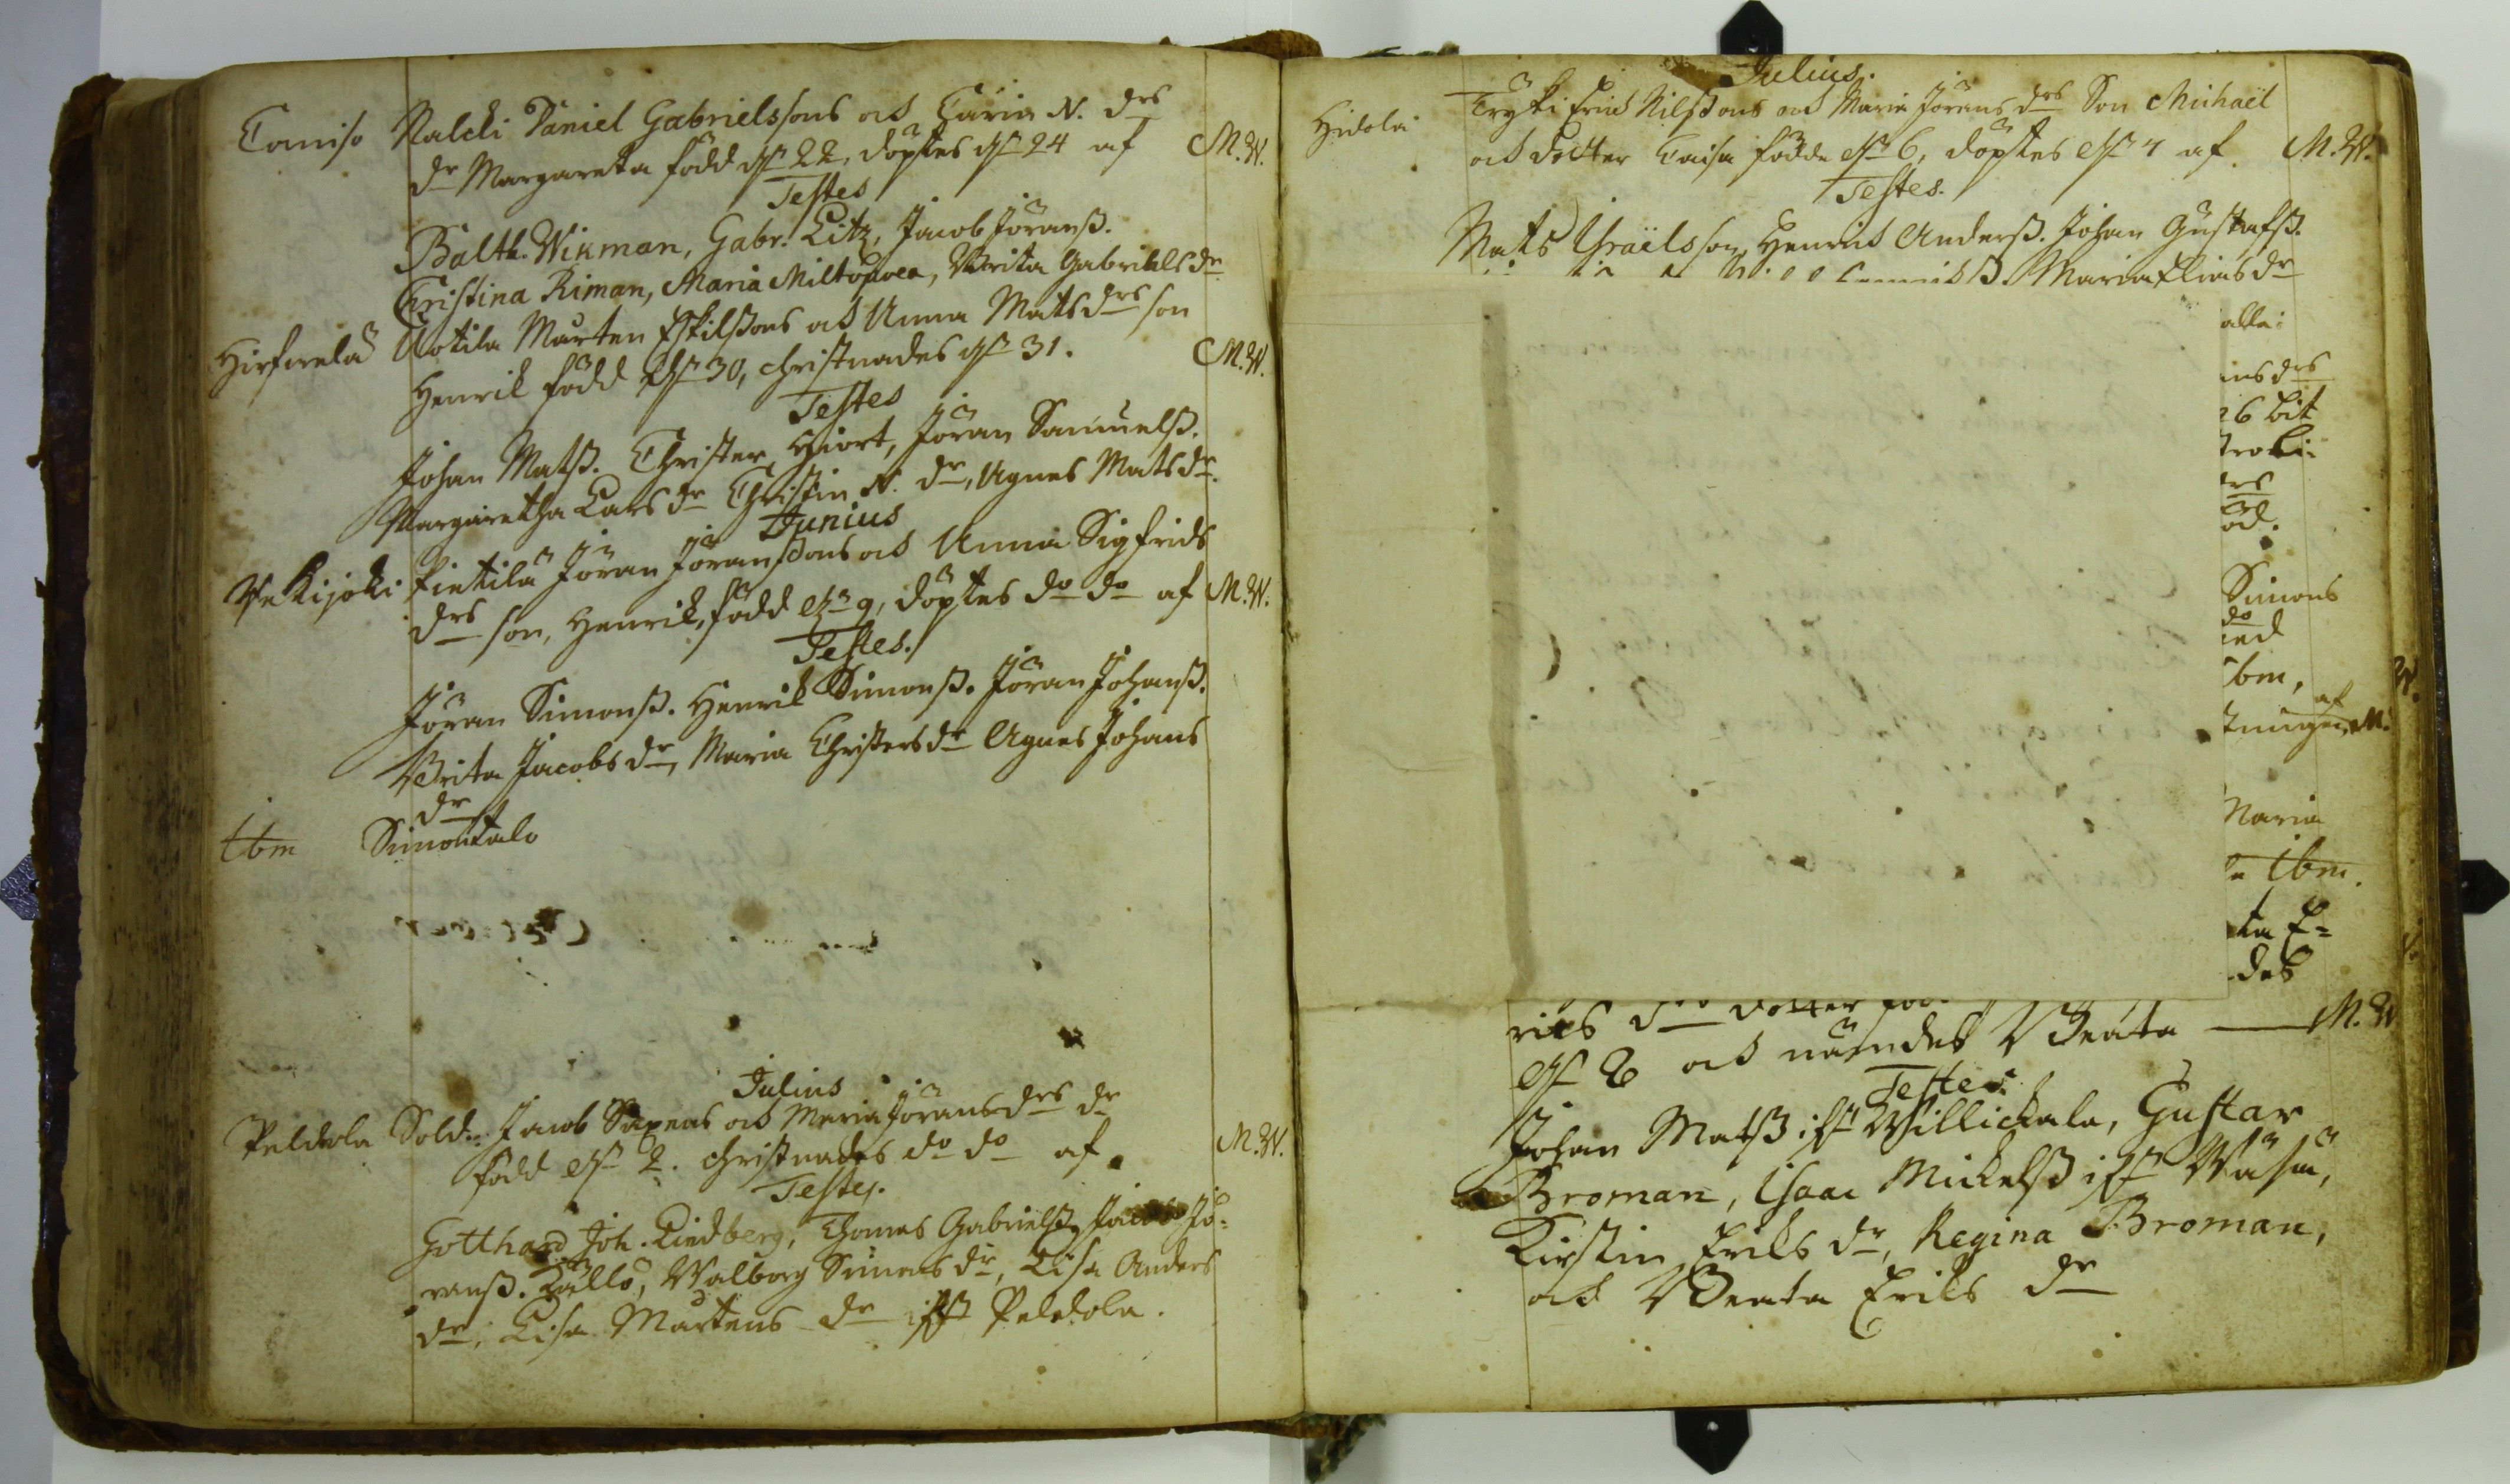 Caniso Nalcki Daniel Gabrielssons och Carin N. drs
dr Margareta född d. 22, döptes d. 24 af M.W.
Testes
Balth. Wikman, Gabr. Litz, Jacob Jöranß.
Christina Riman, Maria Miltopoea, Brita Gabriels dr
Hirfwelä Motila Mårten Eskilssons och Anna Mats drs son
Henrik född d. 30, christnades d. 31. M.W.
Testes
Johan Matß. Christer Hiort, Jöran Samuelß.
Margaretha Lars dr Christin N. dr, Agnes Mats dr.
Junius
Wekijoki Pietilä Jöran Jöranssons och Anna Sigfrids
drs son, Henrik, född d. 9, döptes do do af M.W.
Testes.
Jöran Simonß. Henrik Simonß. Jöran Johanß.
Brita Jacobs dr, Maria Christers dr Agnes Johans
dr
Ibm Simontalo
Julius
Peldola Sold. Jacob Saxens och Maria Jörans drs dr
född d. 2. christnades do do af M.W.
Testes.
Gotthard Joh. Lindberg, Thomas Gabrielß, Jacob Jö-
ranß. Källo, Walborg Simons dr, Lisa Anders
dr, Lisa Mårtens dr ifrån Peldola.
Julius.
Hidola Tryki Erich Nilssons och Maria Jörans drs Son Michaël
och dotter Caisa födde d. 6, döptes d. 7 af M.W.
Testes.
Mats Israëlsson, Henrich Anderß. Johan Gustafß.
Maria Elias dr
alla:
ins drs
26 bit
trobi:
drs
öd.
Simons
do
ned
Ibm, af W.
tningen M.
Maria
a Ibm.
ta E=
des
rics drs dotter
d. 6 och nämdes Beata — M.W
Testes.
Johan Matß ifrån Willickala, Gustav
Broman, Isaac Mickelß ifrån Wäsm,
Kirstin Eriks dr, Regina Broman,
och Beata Eriks dr